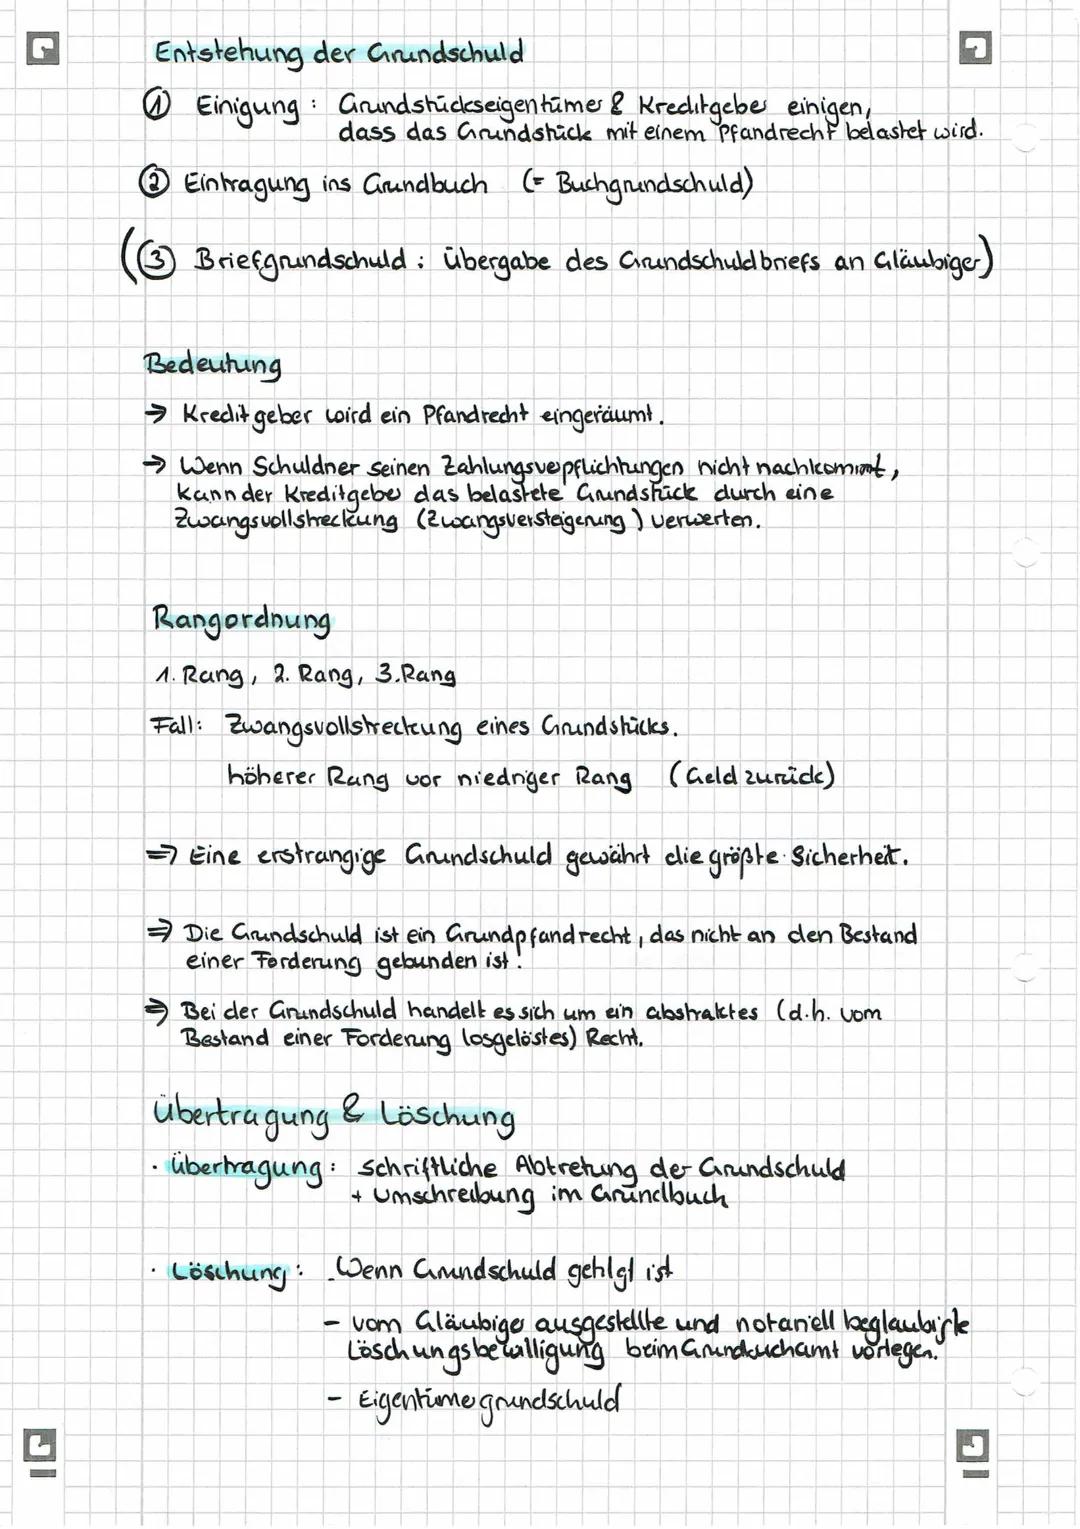 Entstehung der Grundschuld
① Einigung: Grundstückseigentümer & Kreditgeber einigen,
dass das Grundstück mit einem Pfandrecht belastet wird.
② Eintragung ins Grundbuch (= Buchgrundschuld)
(③ Briefgrundschuld: Übergabe des Grundschuldbriefs an Gläubiger)
Bedeutung
→ Kreditgeber wird ein Pfandrecht eingeräumt.
→ Wenn Schuldner seinen Zahlungsverpflichtungen nicht nachkommt,
kann der Kreditgeber das belastete Grundstück durch eine
Zwangsvollstreckung (Zwangsversteigerung) verwerten.
Rangordnung
1. Rang, 2. Rang, 3. Rang
Fall: Zwangsvollstreckung eines Grundstücks.
höherer Rang vor niedriger Rang (Geld zurück)
⇒ Eine erstrangige Grundschuld gewährt die größte Sicherheit.
⇒ Die Grundschuld ist ein Grundpfandrecht, das nicht an den Bestand
einer Forderung gebunden ist!
⇒ Bei der Grundschuld handelt es sich um ein abstraktes (d.h. vom
Bestand einer Forderung losgelöstes) Recht.
Übertragung & Löschung
· Übertragung: schriftliche Abtretung der Grundschuld
+ Umschreibung im Grundbuch
· Löschung: Wenn Grundschuld getilgt ist
- vom Gläubiger ausgestellte und notariell beglaubigte
Löschungsbewilligung beim Grundbuchamt vorlegen.
- Eigentümergrundschuld